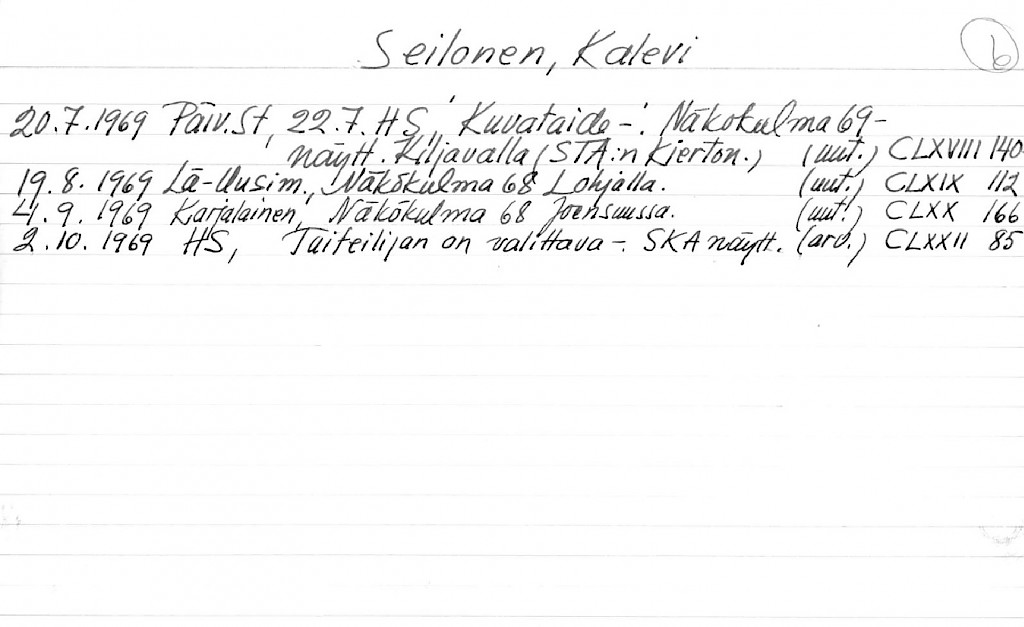 Seilonen, Kalevi
6
20.7.1969 Päiv.St, 22.7. HS, Kuvataide -: Näkökulma 69-
näytt. Kiljavalla (STA:n kierton.) (uut.) CLXVIII 140
19.8.1969 Lä-Uusim., Näkökulma 68 Lohjalla. (uut.) CLXIX 112
4.9.1969 Karjalainen, Näkökulma 68 Joensuussa. (uut.) CLXX 166
2.10.1969 HS, Taiteilijan on valittava -. SKA näytt. (arv.) CLXXII 85